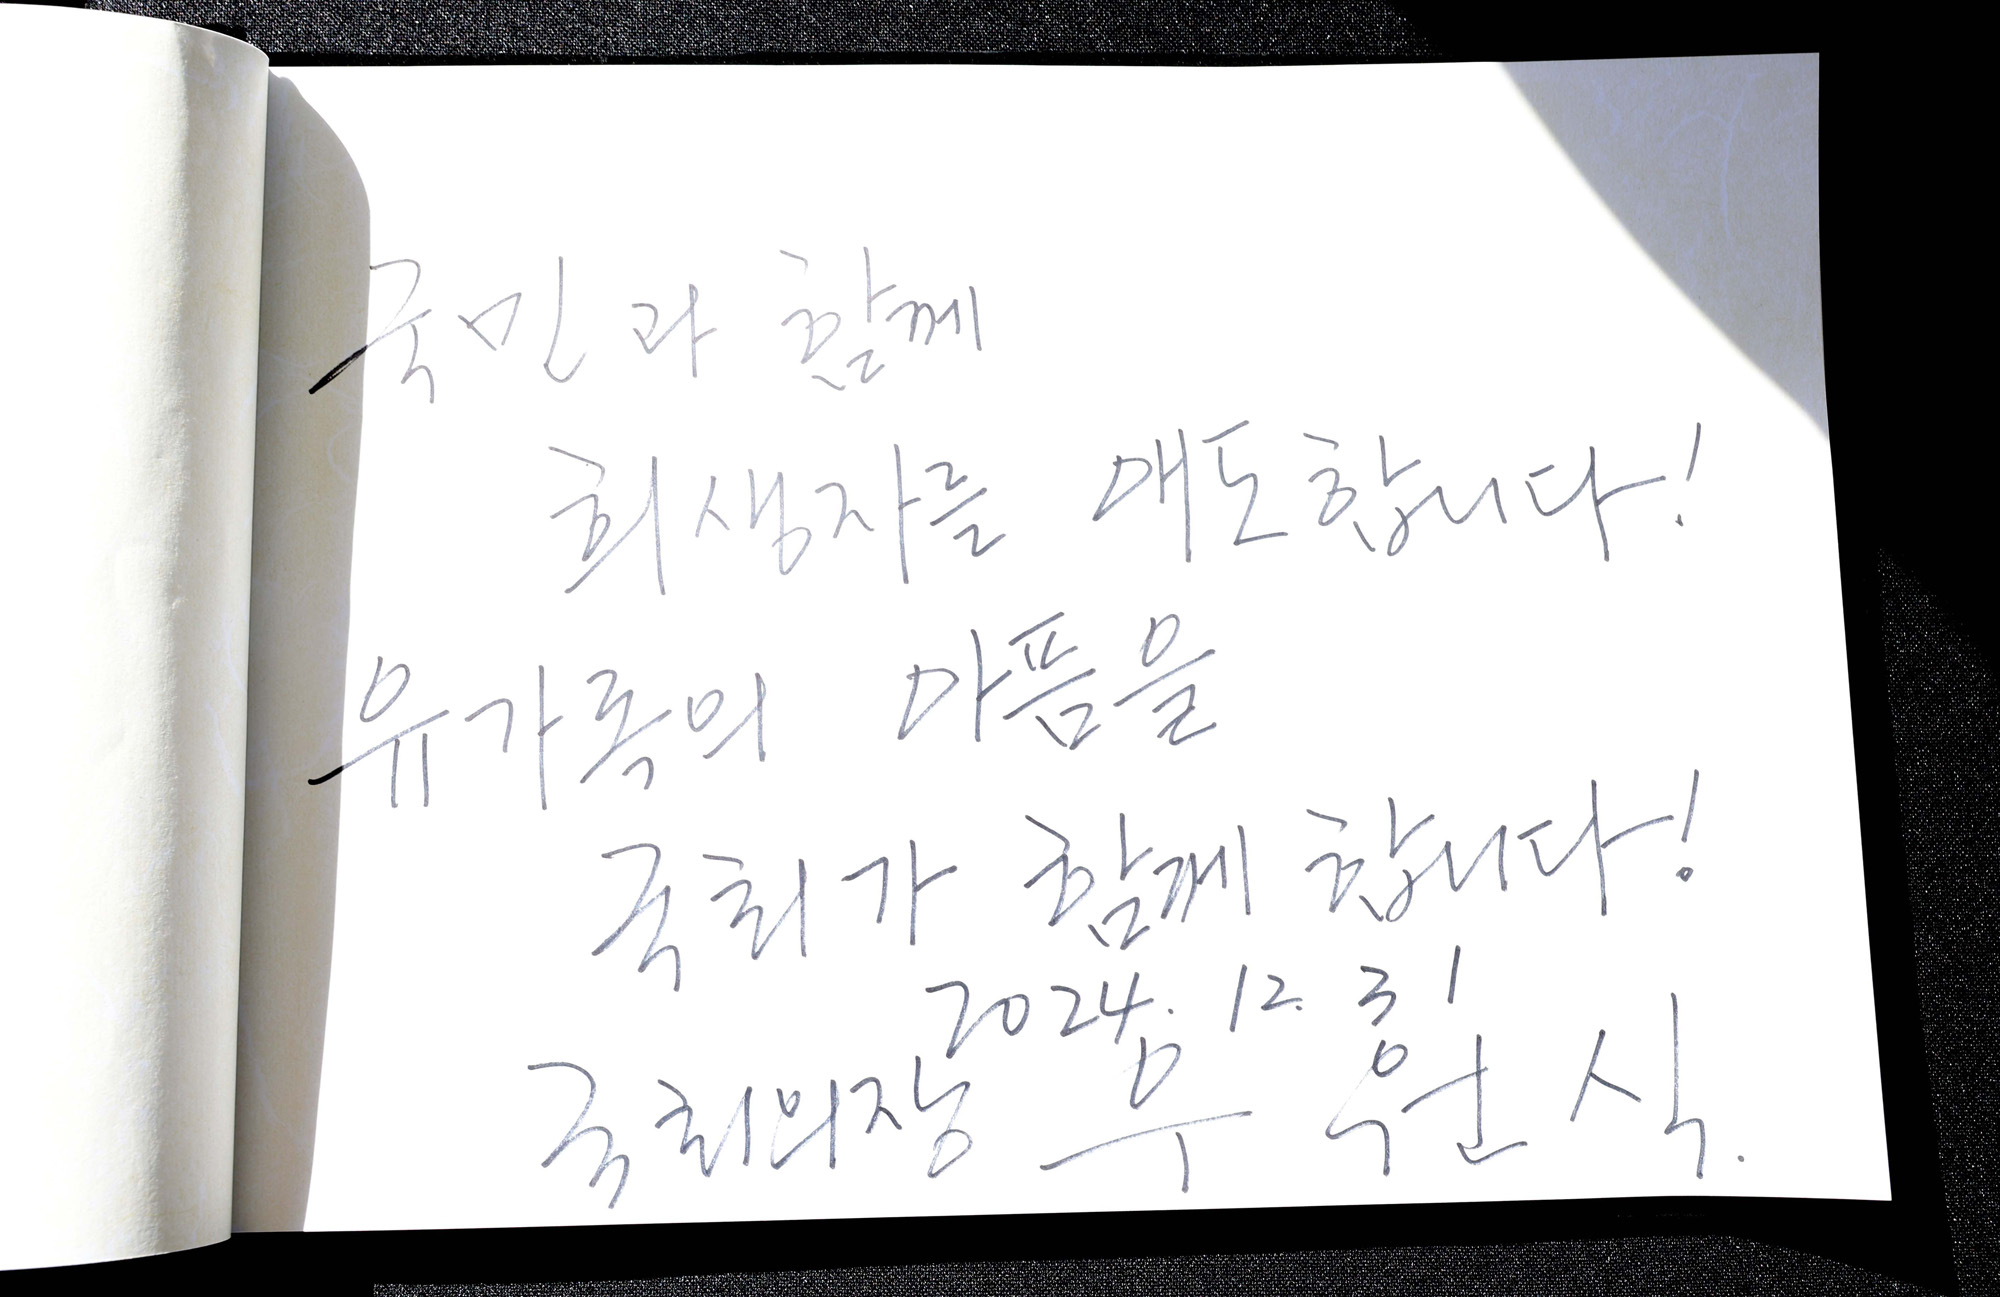 국민과 함께
희생자를 애도합니다!
유가족의 아픔을
국회가 함께 합니다!
2024. 12. 31
국회의장 우 원 식.